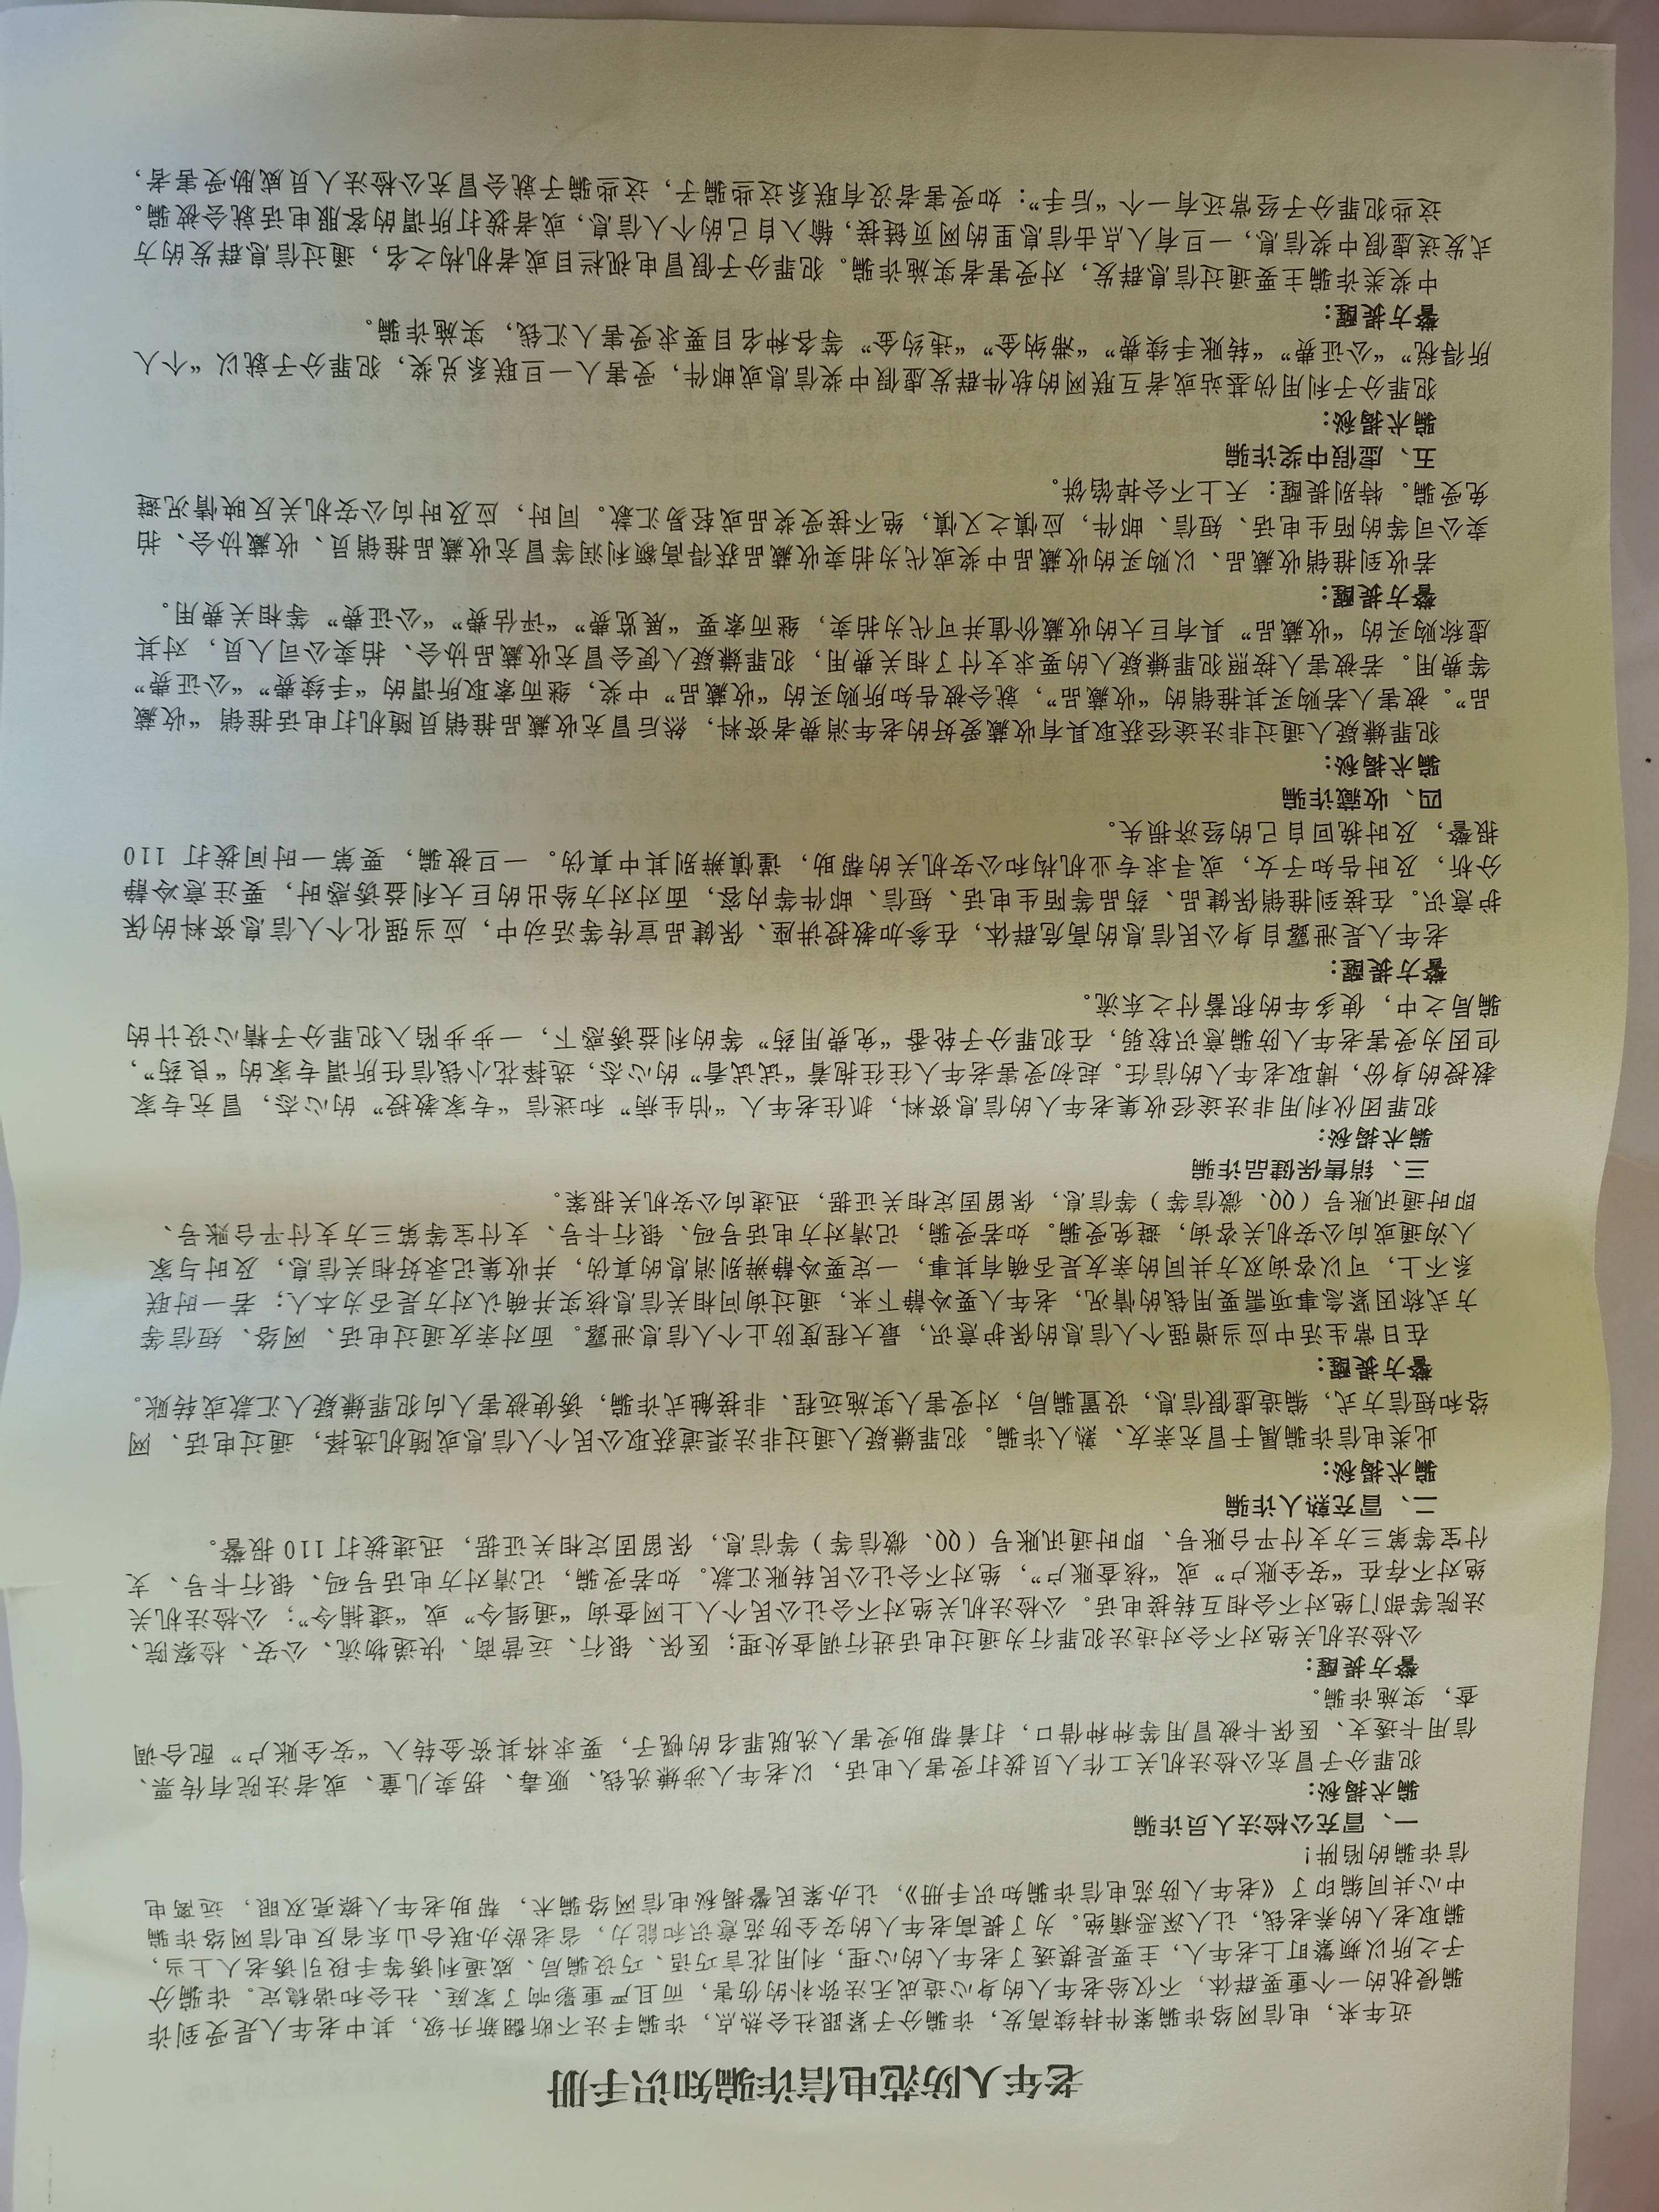 老年人防范电信诈骗知识手册
近年来，电信网络诈骗案件持续高发，诈骗分子紧跟社会热点，诈骗手法不断翻新升级，其中老年人是受到诈
骗侵扰的一个重要群体，不仅给老年人的身心造成无法弥补的伤害，而且严重影响了家庭、社会和谐稳定。诈骗分
子之所以频繁盯上老年人，主要是摸透了老年人的心理，利用花言巧语、巧设骗局、威逼利诱等手段引诱老人上当，
骗取老人的养老钱，让人深恶痛绝。为了提高老年人的安全防范意识和能力，省老龄办联合山东省反电信网络诈骗
中心共同编印了《老年人防范电信诈骗知识手册》，让办案民警揭秘电信网络骗术，帮助老年人擦亮双眼，远离电
信诈骗的陷阱！
一、冒充公检法人员诈骗
骗术揭秘：
犯罪分子冒充公检法机关工作人员拨打受害人电话，以老年人涉嫌洗钱、贩毒、拐卖儿童、或者法院有传票、
信用卡透支、医保卡被冒用等种种借口，打着帮助受害人洗脱罪名的幌子，要求将其资金转入“安全账户”配合调
查，实施诈骗。
警方提醒：
公检法机关绝对不会对违法犯罪行为通过电话进行调查处理；医保、银行、运营商、快递物流、公安、检察院、
法院等部门绝对不会相互转接电话。公检法机关绝对不会让公民个人上网查询“通缉令”或“逮捕令”；公检法机关
绝对不存在“安全账户”或“核查账户”，绝对不会让公民转账汇款。如若受骗，记清对方电话号码、银行卡号、支
付宝等第三方支付平台账号、即时通讯账号（QQ、微信等）等信息，保留固定相关证据，迅速拨打 110 报警。
二、冒充熟人诈骗
骗术揭秘：
此类电信诈骗属于冒充亲友、熟人诈骗。犯罪嫌疑人通过非法渠道获取公民个人信息或随机选择，通过电话、网
络和短信方式，编造虚假信息，设置骗局，对受害人实施远程、非接触式诈骗，诱使被害人向犯罪嫌疑人汇款或转账。
警方提醒：
在日常生活中应当增强个人信息的保护意识，最大程度防止个人信息泄露。面对亲友通过电话、网络、短信等
方式称因紧急事项需要用钱的情况，老年人要冷静下来，通过询问相关信息核实并确认对方是否为本人；若一时联
系不上，可以咨询双方共同的亲友是否确有其事，一定要冷静辨别消息的真伪，并收集记录好相关信息，及时与家
人沟通或向公安机关咨询，避免受骗。如若受骗，记清对方电话号码、银行卡号、支付宝等第三方支付平台账号、
即时通讯账号（QQ、微信等）等信息，保留固定相关证据，迅速向公安机关报案。
三、销售保健品诈骗
骗术揭秘：
犯罪团伙利用非法途径收集老年人的信息资料，抓住老年人“怕生病”和迷信“专家教授”的心态，冒充专家
教授的身份，博取老年人的信任。起初受害老年人往往抱着“试试看”的心态，选择花小钱信任所谓专家的“良药”，
但因为受害老年人防骗意识较弱，在犯罪分子轮番“免费用药”等的利益诱惑下，一步步陷入犯罪分子精心设计的
骗局之中，使多年的积蓄付之东流。
警方提醒：
老年人是泄露自身公民信息的高危群体，在参加教授讲座、保健品宣传等活动中，应当强化个人信息资料的保
护意识。在接到推销保健品、药品等陌生电话、短信、邮件等内容，面对对方给出的巨大利益诱惑时，要注意冷静
分析，及时告知子女，或寻求专业机构和公安机关的帮助，谨慎辨别其中真伪。一旦被骗，要第一时间拨打 110
报警，及时挽回自己的经济损失。
四、收藏诈骗
骗术揭秘：
犯罪嫌疑人通过非法途径获取具有收藏爱好的老年消费者资料，然后冒充收藏品推销员随机打电话推销“收藏
品”。被害人若购买其推销的“收藏品”，就会被告知所购买的“收藏品”中奖，继而索取所谓的“手续费”“公证费”
等费用。若被害人按照犯罪嫌疑人的要求支付了相关费用，犯罪嫌疑人便会冒充收藏品协会、拍卖公司人员，对其
虚称购买的“收藏品”具有巨大的收藏价值并可代为拍卖，继而索要“展览费”“评估费”“公证费”等相关费用。
警方提醒：
若收到推销收藏品、以购买的收藏品中奖或代为拍卖收藏品获得高额利润等冒充收藏品推销员、收藏协会、拍
卖公司等的陌生电话、短信、邮件，应慎之又慎，绝不接受奖品或轻易汇款。同时，应及时向公安机关反映情况避
免受骗。特别提醒：天上不会掉馅饼。
五、虚假中奖诈骗
骗术揭秘：
犯罪分子利用伪基站或者互联网的软件群发虚假中奖信息或邮件，受害人一旦联系兑奖，犯罪分子就以“个人
所得税”“公证费”“转账手续费”“滞纳金”“违约金”等各种名目要求受害人汇钱，实施诈骗。
警方提醒：
中奖类诈骗主要通过信息群发，对受害者实施诈骗。犯罪分子假冒电视栏目或者机构之名，通过信息群发的方
式发送虚假中奖信息，一旦有人点击信息里的网页链接，输入自己的个人信息，或者拨打所谓的客服电话就会被骗。
这些犯罪分子经常还有一个“后手”：如受害者没有联系这些骗子，这些骗子就会冒充公检法人员威胁受害者，